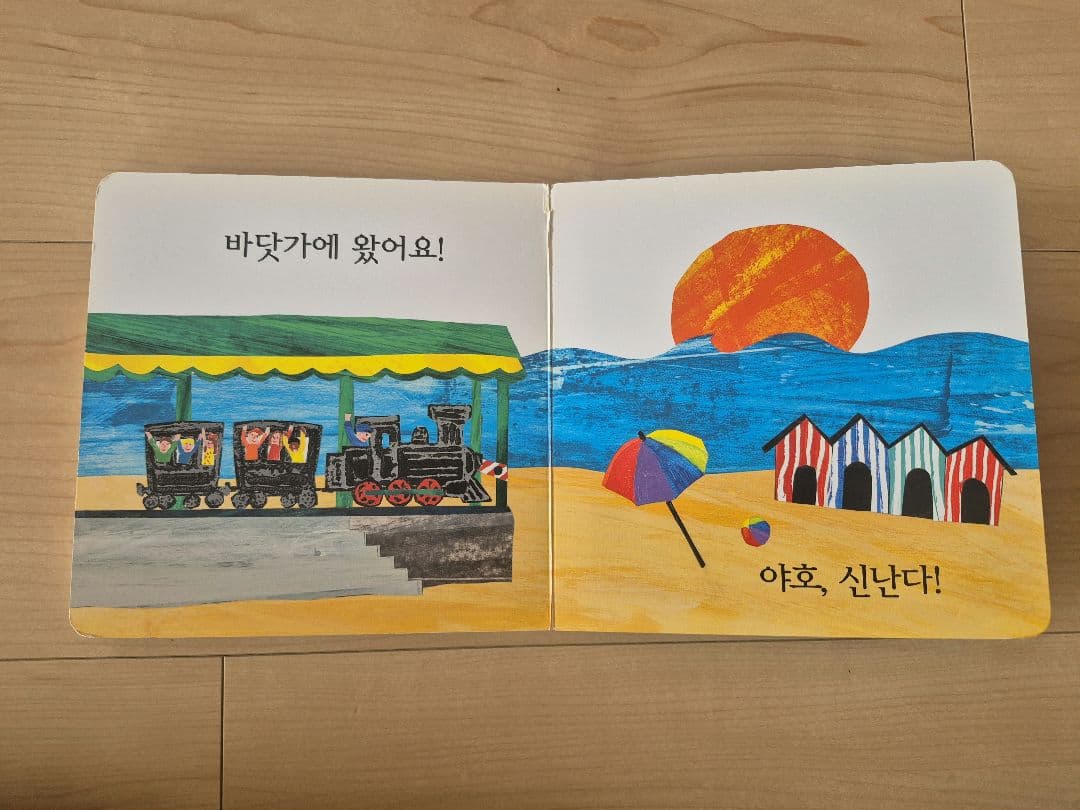 바닷가에 왔어요!
야호, 신난다!